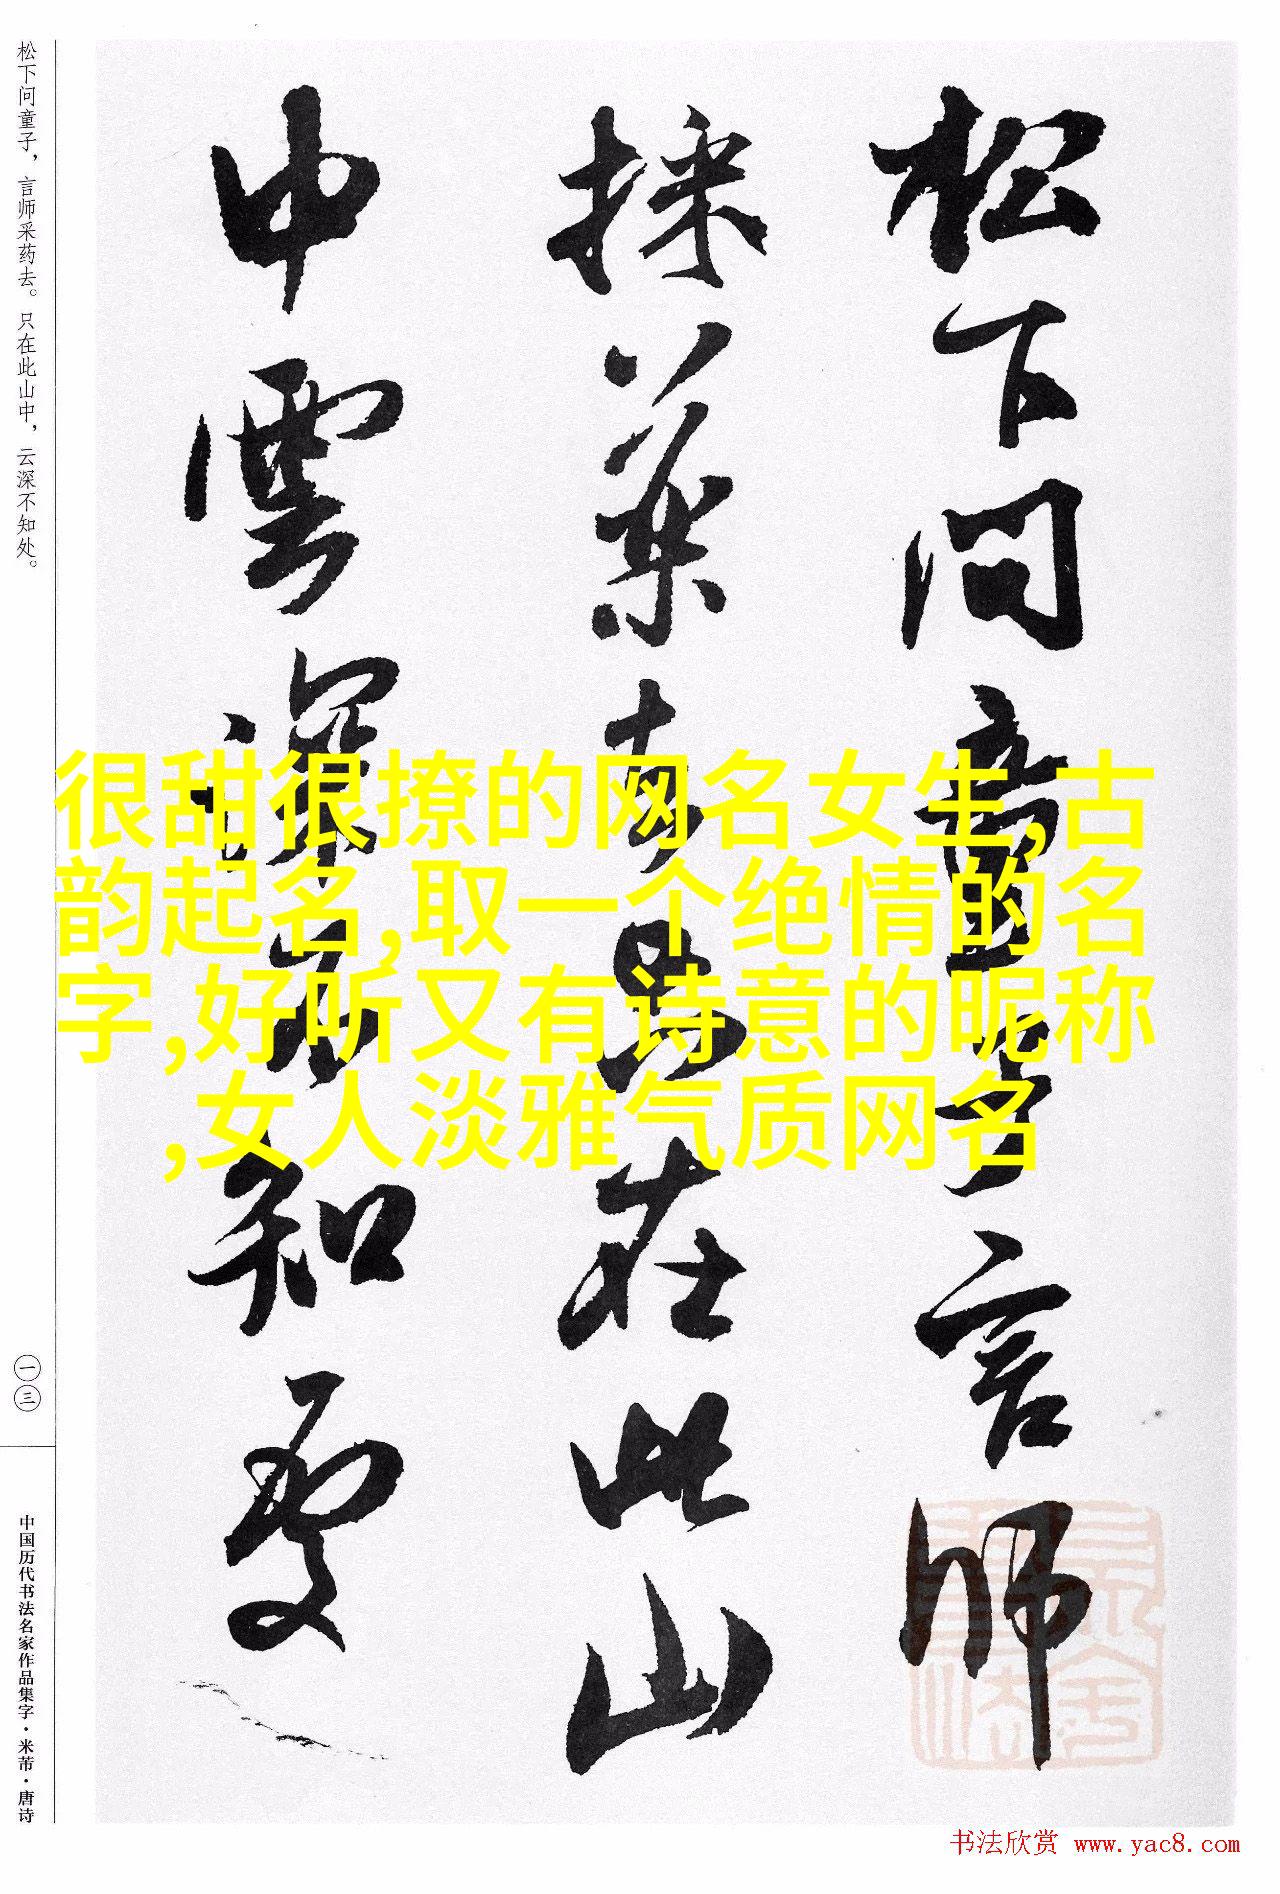 松下问童子，言师采药去。只在此山中，云深不知处。
一三
中国历代书法名家作品集字·米芾·唐诗
松下问童子言师
採药去只在此山
中雲深不知处
很甜很撩的网名女生,古
韵起名,取一个绝情的名
字,好听又有诗意的昵称
,女人淡雅气质网名
书法欣赏 www.yac8.com